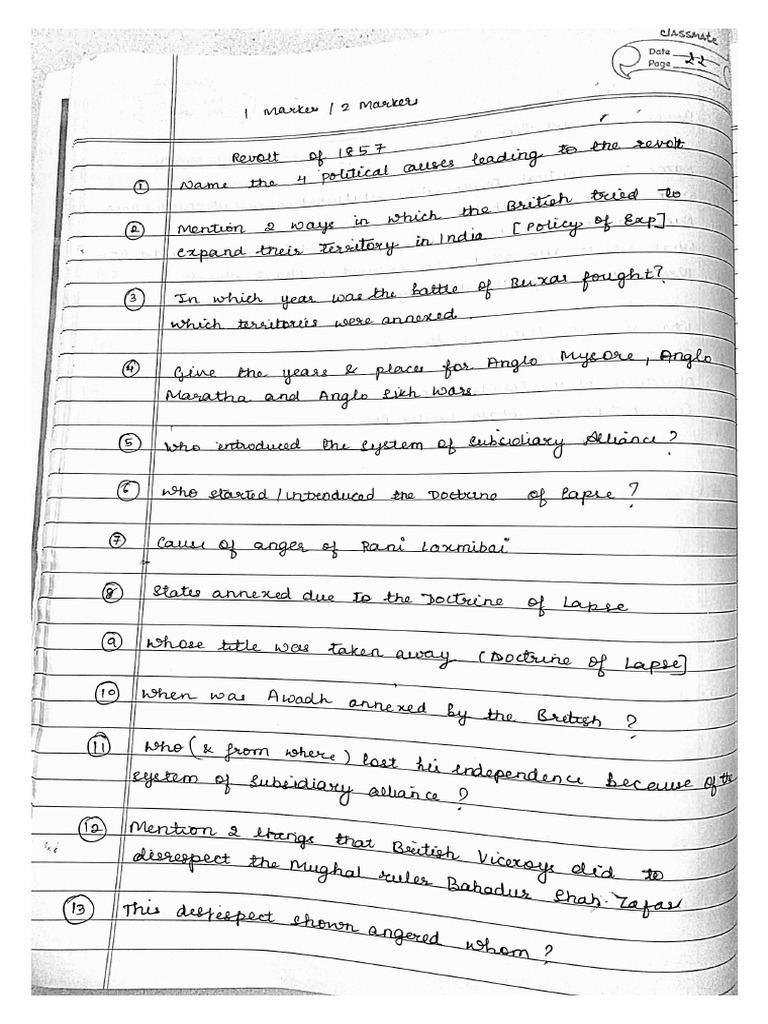 CLASSMATE
Date
Page 22
1 Marker / 2 Marker
Revolt of 1857
1 Name the 4 political causes leading to the revolt
2 Mention 2 ways in which the British tried to
expand their territory in India [Policy of Exp]
3 In which year was the battle of Buxar fought?
which territories were annexed.
4 Give the years & places for Anglo Mysore, Anglo
Maratha and Anglo Sikh wars.
5 Who introduced the system of subsidiary Alliance?
6 Who started/introduced the Doctrine of lapse?
7 Cause of anger of Rani Laxmibai
8 States annexed due to the Doctrine of Lapse
9 Whose title was taken away (Doctrine of Lapse]
10 When was Awadh annexed by the British?
11 Who (& from where) lost his independence because of the
system of subsidiary alliance?
12 Mention 2 things that British Viceroys did to
disrespect the Mughal ruler Bahadur Shah Zafar
13 This disrespect shown angered whom?